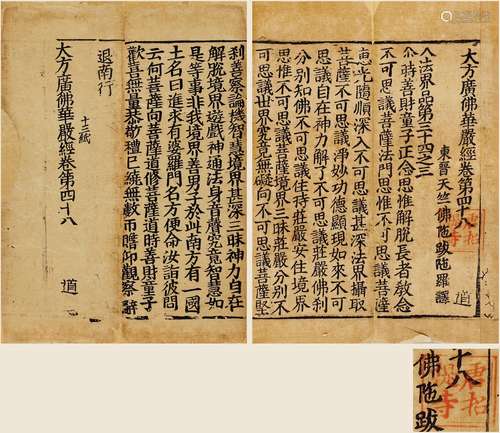 大方廣佛華嚴經卷第四十八
道
東晉天竺佛陁跋陁羅譯
入法界品第三十四之三
尒時善財童子正念思惟解脫長者教念
不可思議菩薩法門思惟不可思議菩薩
慧光隨順深入不可思議甚深法界攝取
菩薩不可思議淨妙功德顯現如來不可
思議自在神力解了不可思議莊嚴佛刹
分別知佛不可思議住持莊嚴安住境界
思惟不可思議菩薩境界三昧莊嚴分別不
可思議世界究竟無礙向不可思議菩薩堅
刹善察論機智慧境界甚深三昧神力自在
解脫境界遊戲神通法身音聲究竟智慧如
是等事非我境界善男子於此南方有一國
土名曰進求有婆羅門名方便命汝詣彼問
云何菩薩向菩薩道修菩薩道時善財童子
歡喜無量恭敬禮已繞無數帀瞻仰觀察辭
退南行
大方廣佛華嚴經卷第四十八
十三紙
道
十八
佛陁跋
唐招
提寺